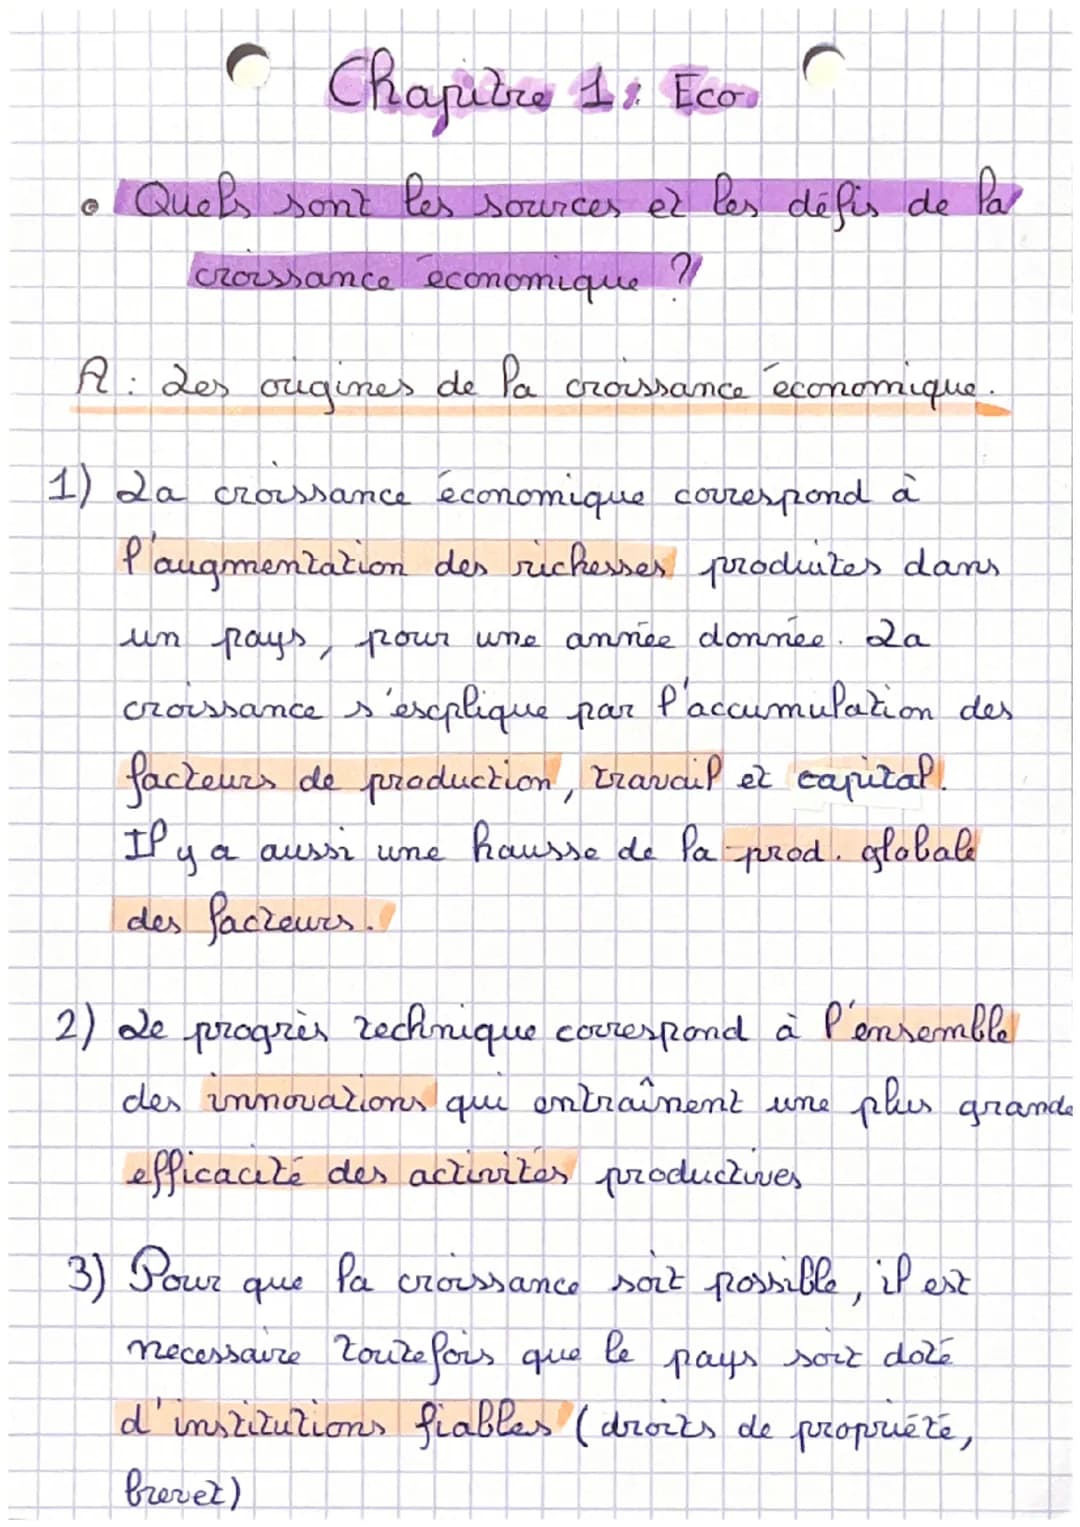 Chapitre 1 : Eco
• Quels sont les sources et les défis de la
croissance économique ?
A : Les origines de la croissance économique.
1) La croissance économique correspond à
l'augmentation des richesses produites dans
un pays, pour une année donnée. La
croissance s'explique par l'accumulation des
facteurs de production, travail et capital.
Il y a aussi une hausse de la prod. globale
des facteurs.
2) Le progrès technique correspond à l'ensemble
des innovations qui entraînent une plus grande
efficacité des activités productives
3) Pour que la croissance soit possible, il est
necessaire toutefois que le pays soit doté
d'institutions fiables (droits de propriété,
brevet)